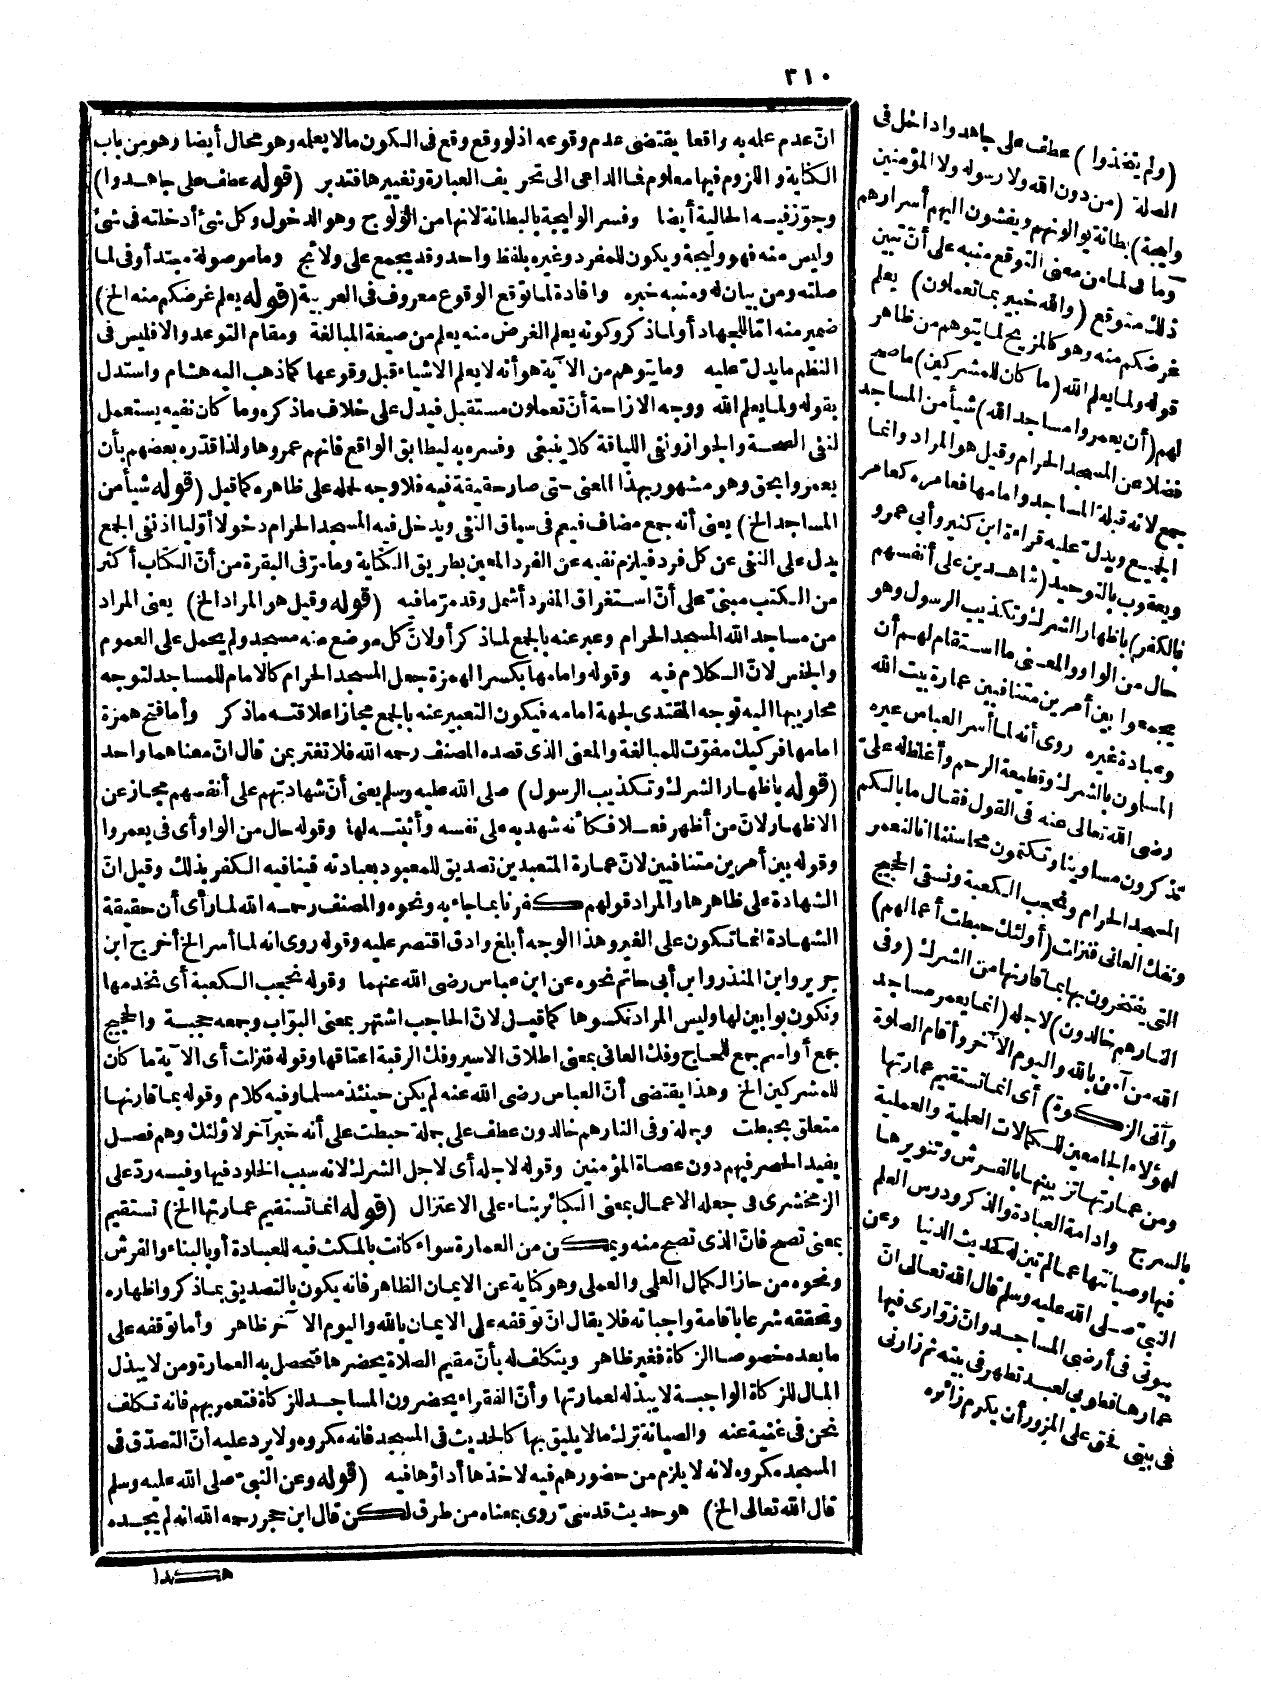 ٣١٠
انّ عدم علمه به واقعا يقتضى عدم وقوعه اذلو وقع وقع فى الكون مالا يعلمه وهو محال أيضا وهو من باب
الكناية واللزوم فيها معلوم فما الداعى الى تحريف العبارة وتغييرها فتدبر (قوله عطف على جاهدوا)
وجوّز فيه الحالية أيضا وفسر الوليجة بالبطانة لانها من الولوج وهو الدخول وكل شئ أدخلته فى شئ
وليس منه فهو وليجة ويكون للمفرد وغيره بلفظ واحد وقد يجمع على ولائج وما موصولة مبتدأ وفى لما
صلته ومن بيان له ومنبه خبره وافادة لما توقع الوقوع معروف فى العربية (قوله يعلم غرضكم منه الخ)
ضمير منه امّا للجهاد أو لما ذكر وكونه يعلم الغرض منه يعلم من صيغة المبالغة ومقام التوعد والافليس فى
النظم ما يدل عليه وما يتوهم من الآية هو أنه لا يعلم الاشياء قبل وقوعها كما ذهب اليه هشام واستدل
بقوله ولما يعلم الله ووجه الازاحة أنّ تعملون مستقبل فيدل على خلاف ما ذكره وما كان نفيه يستعمل
لنفى الصحة والجواز ونفى اللياقة كلا ينبغى وفسره به ليطابق الواقع فانهم عمروها ولذا قدره بعضهم بأن
يعمروا بحق وهو مشهور بهذا المعنى حتى صار حقيقة فيه فلا وجه لحمله على ظاهره كما قيل (قوله شيأ من
المساجد الخ) يعنى أنه جمع مضاف فيعم فى سياق النفى ويدخل فيه المسجد الحرام دخولا أوليا اذ نفى الجمع
يدل على النفى عن كل فرد فيلزم نفيه عن الفرد المعين بطريق الكناية وما مرّ فى البقرة من أنّ الكتاب أكثر
من الكتب مبنىّ على أنّ استغراق المفرد أشمل وقد مرّ ما فيه (قوله وقيل هو المراد الخ) يعنى المراد
من مساجد الله المسجد الحرام وعبر عنه بالجمع لما ذكر أولان كل موضع منه مسجد ولم يحمل على العموم
والجنس لانّ الكلام فيه وقوله وامامها بكسر الهمزة جعل المسجد الحرام كالامام للمساجد لتوجه
محاريبها اليه توجه المقتدى لجهة امامه فيكون التعبير عنه بالجمع مجازا علاقته ما ذكر وأما فتح همزة
امامها فركيك مفوّت للمبالغة والمعنى الذى قصده المصنف رحمه الله فلا تغتر بمن قال انّ معناهما واحد
(قوله باظهار الشرك وتكذيب الرسول) صلى الله عليه وسلم يعنى أنّ شهادتهم على أنفسهم مجاز عن
الاظهار لانّ من أظهر فعلا فكأنه شهد به على نفسه وأثبته لها وقوله حال من الواو أى فى يعمروا
وقوله بين أمرين متنافيين لانّ عمارة المتعبدين تصديق للمعبود بعبادته فينافيه الكفر بذلك وقيل انّ
الشهادة على ظاهرها والمراد قولهم كفرنا بما جاء به ونحوه والمصنف رحمه الله لما رأى أن حقيقة
الشهادة انما تكون على الغير وهذا الوجه أبلغ وادق اقتصر عليه وقوله روى انه لما أسر الخ أخرج ابن
جرير وابن المنذر وابن أبى حاتم نحوه عن ابن عباس رضى الله عنهما وقوله نحجب الكعبة أى نخدمها
ونكون بوابين لها وليس المراد نكسوها كما قيل لانّ الحاجب اشتهر بمعنى البوّاب وجمعه حجبة والحجيج
جمع أو اسم جمع للحاج وفك العانى بمعنى اطلاق الاسير وفك الرقبة اعتاقها وقوله فنزلت أى الآية ما كان
للمشركين الخ وهذا يقتضى أنّ العباس رضى الله عنه لم يكن حينئذ مسلما وفيه كلام وقوله بما قارنها
متعلق بحبطت وجملة وفى النار هم خالدون عطف على جملة حبطت على أنه خبر آخر لاولئك وهم فصل
يفيد الحصر فيهم دون عصاة المؤمنين وقوله لاجله أى لاجل الشرك لانه سبب الخلود فيها وفيه ردّ على
الزمخشرى فى جعله الاعمال بمعنى الكبائر بناء على الاعتزال (قوله انما تستقيم عمارتها الخ) تستقيم
بمعنى تصح فانّ الذى تصح منه ويمكن من العمارة سواء كانت بالمكث فيه للعبادة أو بالبناء والفرش
ونحوه من حاز الكمال العلمى والعملى وهو كناية عن الايمان الظاهر فانه يكون بالتصديق بما ذكر واظهاره
وتحققه شرعا باقامة واجباته فلا يقال انّ توقفه على الايمان بالله واليوم الآخر ظاهر وأما توقفه على
ما بعده خصوصا الزكاة فغير ظاهر ويتكلف له بأنّ مقيم الصلاة يحضرها فتحصل به العمارة ومن لا يبذل
المال للزكاة الواجبة لا يبذله لعمارتها وأنّ الفقراء يحضرون المساجد للزكاة فتعمر بهم فانه تكلف
نحن فى غنية عنه والصيانة ترك ما لا يليق بها كالحديث فى المسجد فانه مكروه ولا يرد عليه أنّ التصدّق فى
المسجد مكروه لانه لا يلزم من حضورهم فيه لاخذها أداؤها فيه (قوله وعن النبىّ صلى الله عليه وسلم
قال الله تعالى الخ) هو حديث قدسىّ روى بمعناه من طرف لكن قال ابن حجر رحمه الله انه لم يجده
هكذا
(ولم يتخذوا) عطف على جاهدوا داخل فى
الصلة (من دون الله ولا رسوله ولا المؤمنين
وليجة) بطانة يوالونهم ويفشون اليهم أسرارهم
وما فى لما من معنى التوقع منبه على أنّ تبين
ذلك متوقع (والله خبير بما تعملون) يعلم
غرضكم منه وهو كالمزيح لما يتوهم من ظاهر
قوله ولما يعلم الله (ما كان للمشركين) ما صح
لهم (أن يعمروا مساجد الله) شيأ من المساجد
فضلا عن المسجد الحرام وقيل هو المراد وانما
جمع لانه قبلة المساجد وامامها فعامره كعامر
الجميع ويدل عليه قراءة ابن كثير وأبى عمرو
ويعقوب بالتوحيد (شاهدين على أنفسهم
بالكفر) باظهار الشرك وتكذيب الرسول وهو
حال من الواو والمعنى ما استقام لهم أن
يجمعوا بين أمرين متنافيين عمارة بيت الله
وعبادة غيره روى أنه لما أسر العباس عيره
المسلون بالشرك وقطيعة الرحم وأغلظ له علىّ
رضى الله تعالى عنه فى القول فقال ما بالكم
تذكرون مساوينا وتكتمون محاسننا انا لنعمر
المسجد الحرام ونحجب الكعبة ونسقى الحجيج
ونفك العانى فنزلت (أولئك حبطت أعمالهم)
التى يفتخرون بها بما قارنها من الشرك (وفى
النار هم خالدون) لاجله (انما يعمر مساجد
الله من آمن بالله واليوم الآخر وأقام الصلوة
وآتى الزكوة) أى انما تستقيم عمارتها
لهؤلاء الجامعين للكمالات العلمية والعملية
ومن عمارتها تزيينها بالفرش وتنويرها
بالسرج وادامة العبادة والذكر ودرس العلم
فيها وصيانتها عما لم تبن له كحديث الدنيا وعن
النبىّ صلى الله عليه وسلم قال الله تعالى انّ
بيوتى فى أرضى المساجد وان زوّارى فيها
عمارها فطوبى لعبد تطهر فى بيته ثم زارنى
فى بيتى فحق على المزور أن يكرم زائره